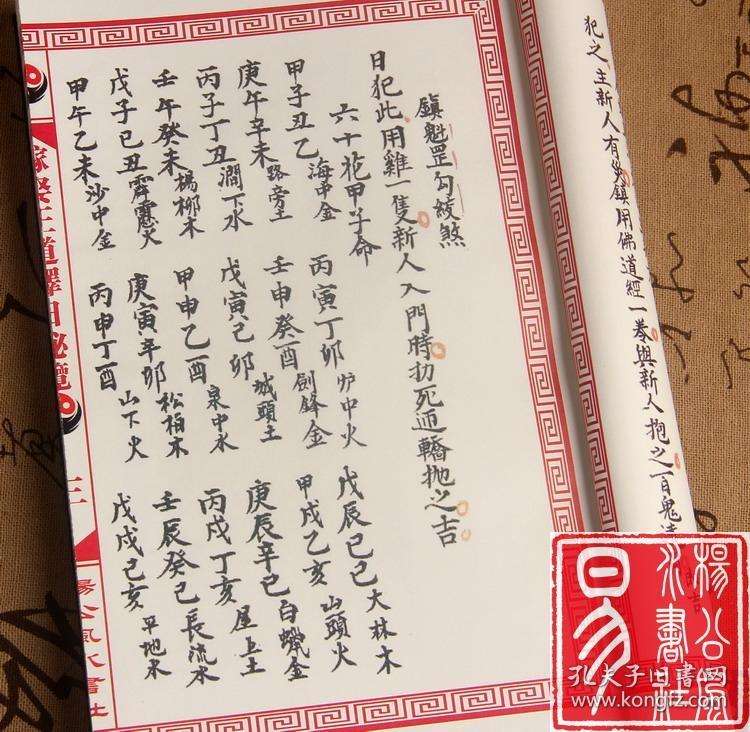 犯之主新人有災鎮用佛道經一卷與新人抱之百鬼
鎮魁罡勾絞煞
日犯此用雞一隻新人入門時扨死迊轎抛之吉
六十花甲子命
甲子丑乙海中金 丙寅丁卯炉中火 戊辰己巳大林木
庚午辛未路旁土 壬申癸酉劍鋒金 甲戌乙亥山頭火
丙子丁丑澗下水 戊寅己卯城頭土 庚辰辛巳白蠟金
壬午癸未楊柳木 甲申乙酉泉中水 丙戌丁亥屋上土
戊子己丑霹靂火 庚寅辛卯松柏木 壬辰癸巳長流水
甲午乙未沙中金 丙申丁酉山下火 戊戌己亥平地木
嫁娶王道擇日秘覽
三
楊公風水書社
楊公風
水書社
易
孔夫子旧书网
www.kongfz.com